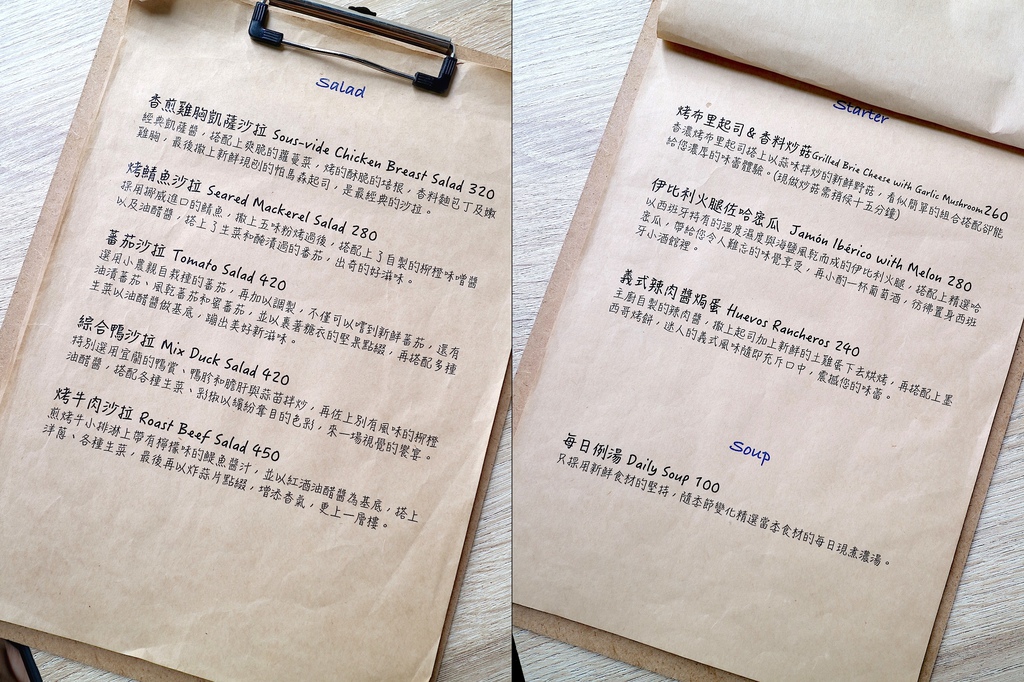 Salad
香煎雞胸凱薩沙拉 Sous-vide Chicken Breast Salad 320
經典凱薩醬，搭配上爽脆的蘿蔓菜，烤的酥脆的培根，香料麵包丁及嫩
雞胸，最後撒上新鮮現刨的帕馬森起司，是最經典的沙拉。
烤鯖魚沙拉 Seared Mackerel Salad 280
採用挪威進口的鯖魚，撒上五味粉烤過後，搭配上了自製的柳橙味噌醬
以及油醋醬，搭上了生菜和醃漬過的番茄，出奇的好滋味。
蕃茄沙拉 Tomato Salad 420
選用小農親自栽種的蕃茄，再加以調製，不僅可以嚐到新鮮蕃茄，還有
油漬蕃茄、風乾蕃茄和蜜蕃茄，並以裹著糖衣的堅果點綴，再搭配多種
生菜以油醋醬做基底，蹦出美好新滋味。
綜合鴨沙拉 Mix Duck Salad 420
特別選用宜蘭的鴨賞、鴨胗和膽肝與蒜苗拌炒，再佐上別有風味的柳橙
油醋醬，搭配各種生菜、彩椒以繽紛奪目的色彩，來一場視覺的饗宴。
烤牛肉沙拉 Roast Beef Salad 450
煎烤牛小排淋上帶有檸檬味的鯷魚醬汁，並以紅酒油醋醬為基底，搭上
洋蔥、各種生菜，最後再以炸蒜片點綴，增添香氣，更上一層樓。
Starter
烤布里起司＆香料炒菇Grilled Brie Cheese with Garlic Mushroom260
香濃烤布里起司搭上以蒜味拌炒的新鮮野菇，看似簡單的組合搭配卻能
給您濃厚的味蕾體驗。(現做炒菇需稍候十五分鐘)
伊比利火腿佐哈密瓜 Jamón Ibérico with Melon 280
以西班牙特有的溫度濕度與海鹽風乾而成的伊比利火腿，搭配上精選哈
密瓜，帶給您令人難忘的味覺享受，再小酌一杯葡萄酒，彷彿置身西班
牙小酒館裡。
義式辣肉醬焗蛋 Huevos Rancheros 240
主廚自製的辣肉醬，撒上起司加上新鮮的土雞蛋下去烘烤，再搭配上墨
西哥烤餅，迷人的義式風味隨即充斥口中，震撼您的味蕾。
Soup
每日例湯 Daily Soup 100
只採用新鮮食材的堅持，隨季節變化精選當季食材的每日現煮濃湯。